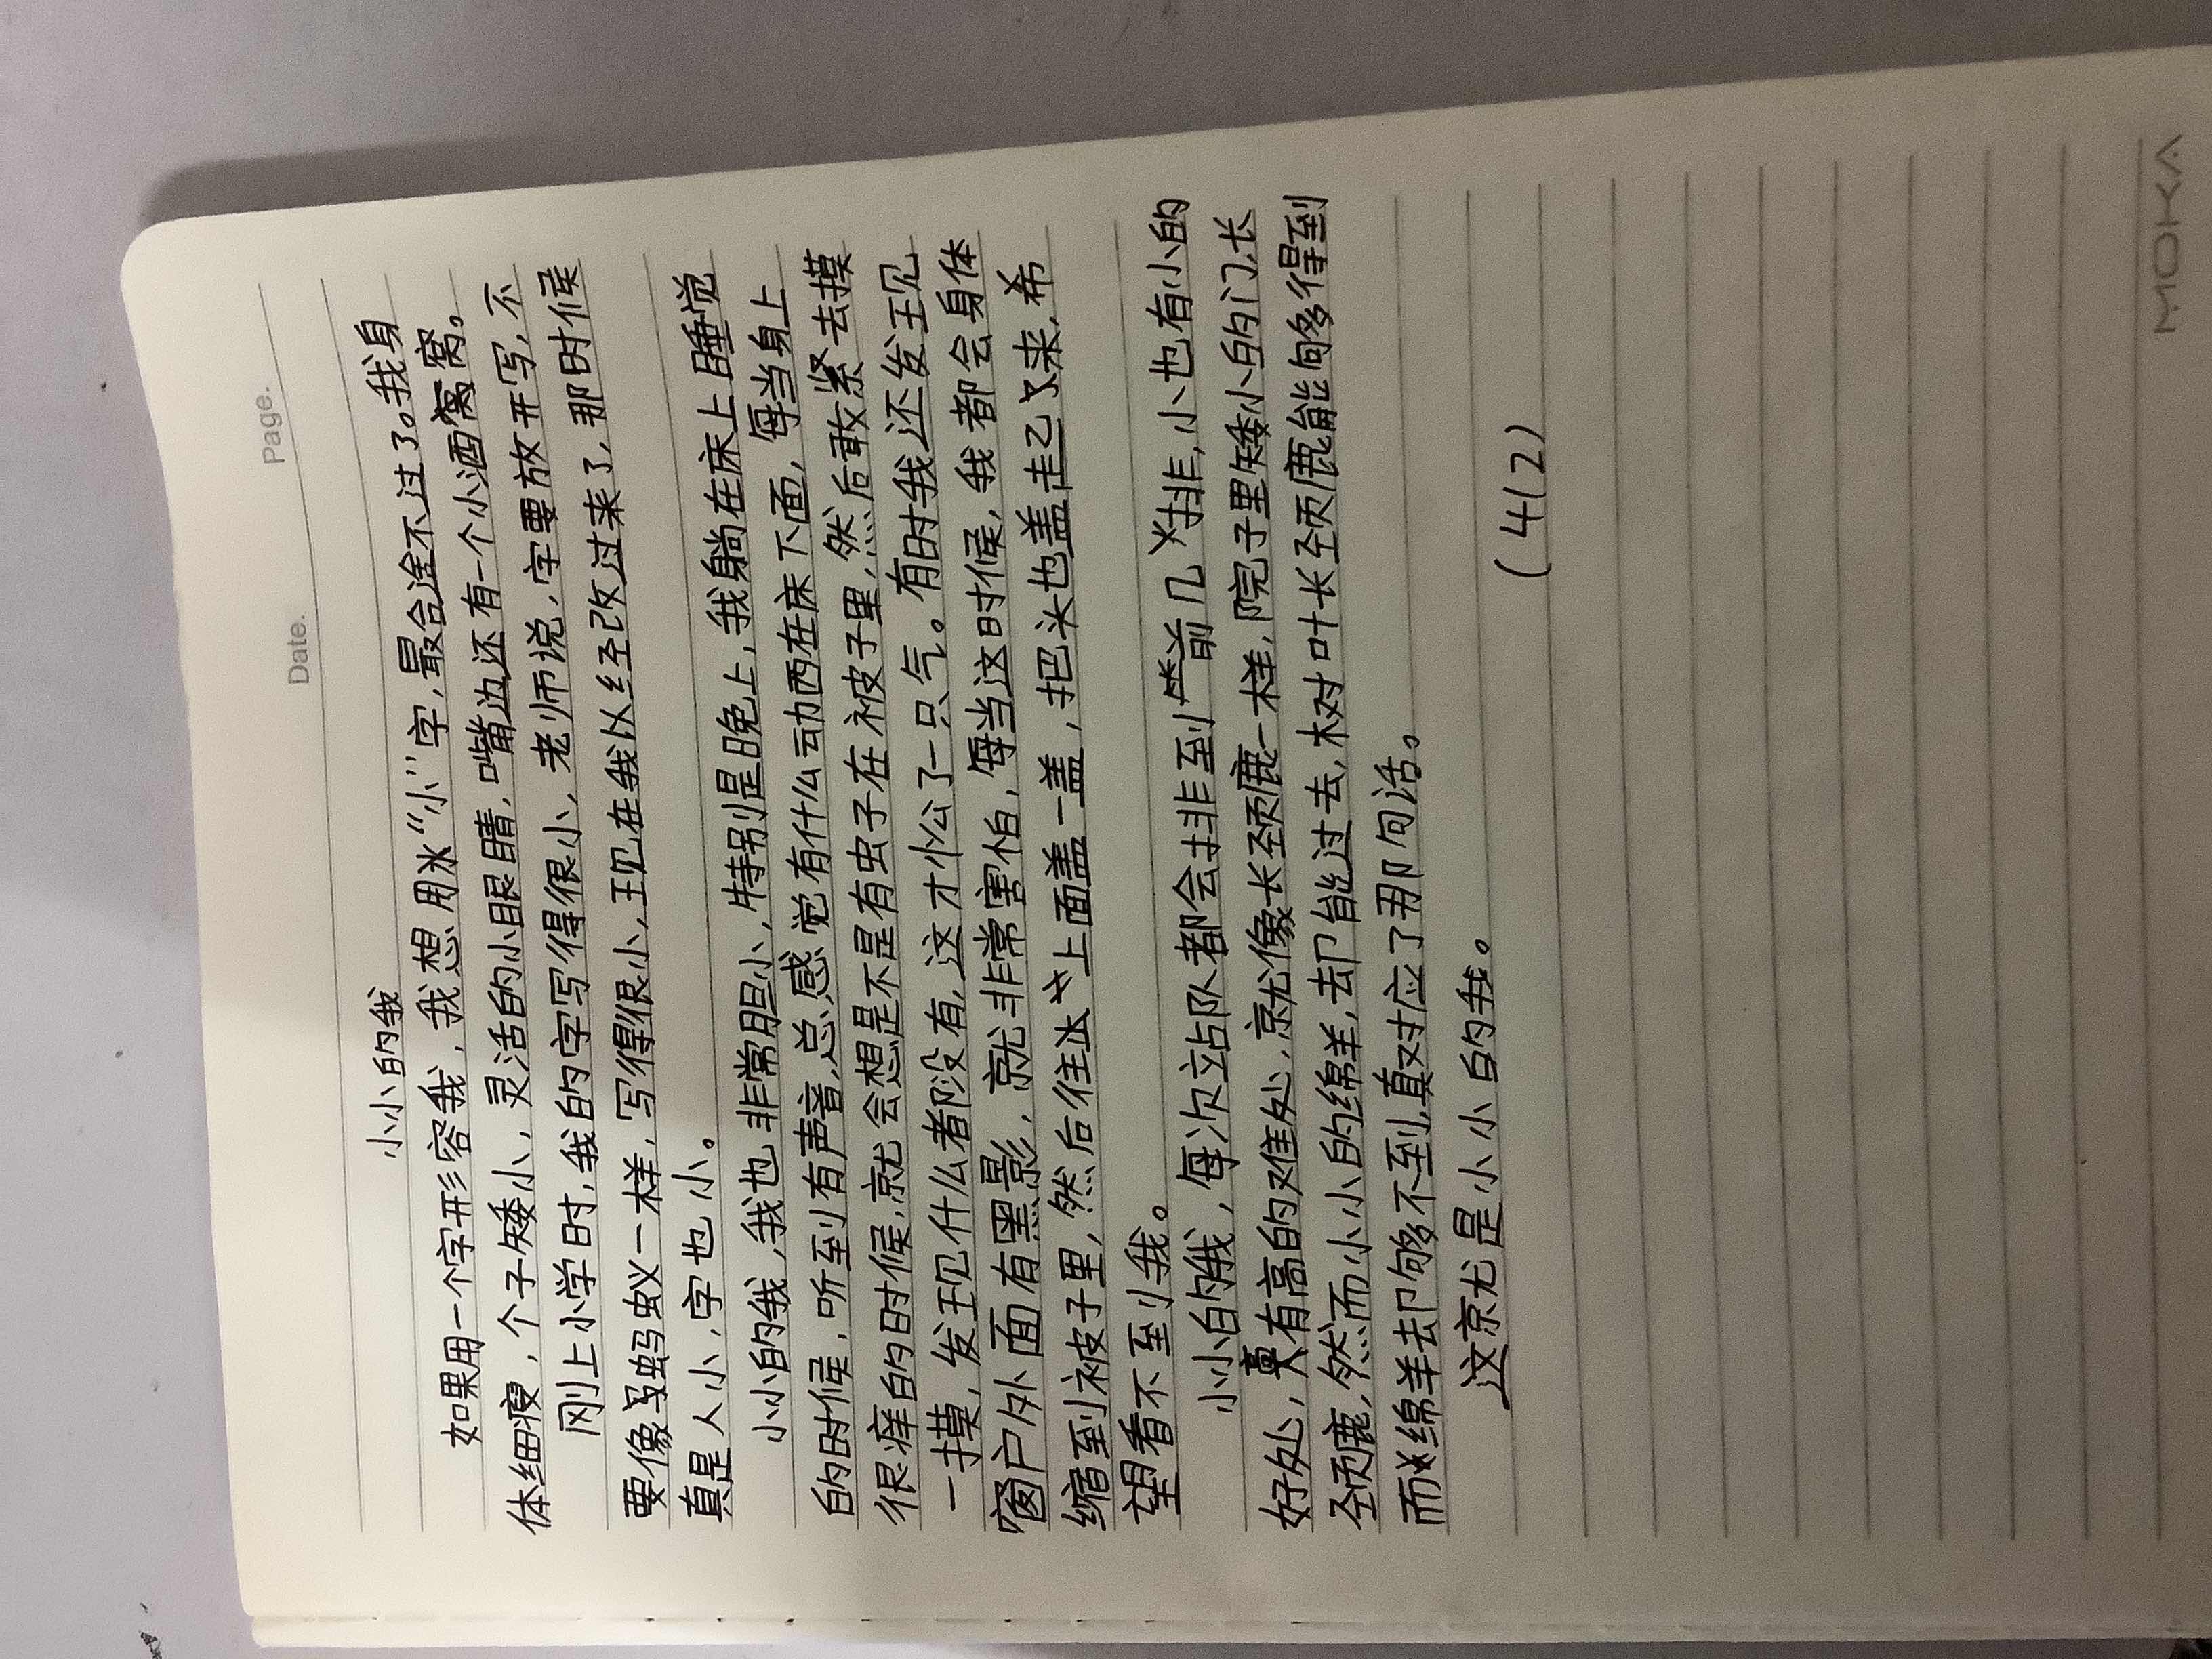 Page.
Date.
小小的我
如果用一个字形容我，我想用"小"字，最合适不过了。我身
体细瘦，个子矮小，灵活的小眼睛，嘴边还有一个小酒窝窝。
刚上小学时，我的字写得很小，老师说，字要放开写，不
要像蚂蚁一样，写得很小，现在我以经改过来了，那时候
真是人小，字也小。
小小的我，我也非常胆小，特别是晚上，我躺在床上睡觉
的时候，听到有声音，总感觉有什么动西在床下面，每当身上
很痒的时候，就会想是不是有虫子在被子里，然后敢紧去摸
一摸，发现什么都没有，这才忪了一只气。有时我还发现
窗户外面有黑影，就非常害怕，每当这时候，我都会身体
缩到被子里，然后往上面盖一盖，把头也盖起了来，希
望看不到我。
小小的我，每次站队都会排到前几排，小也有小的
好处，高有高的难处，就像长颈鹿一样，院子里矮小的门，长
颈鹿，然而小小的绵羊，却能过去，树叶长颈鹿能够得到
而绵羊却够不到，真对应了那句话。
这就是小小的我。
(412)
MOKA